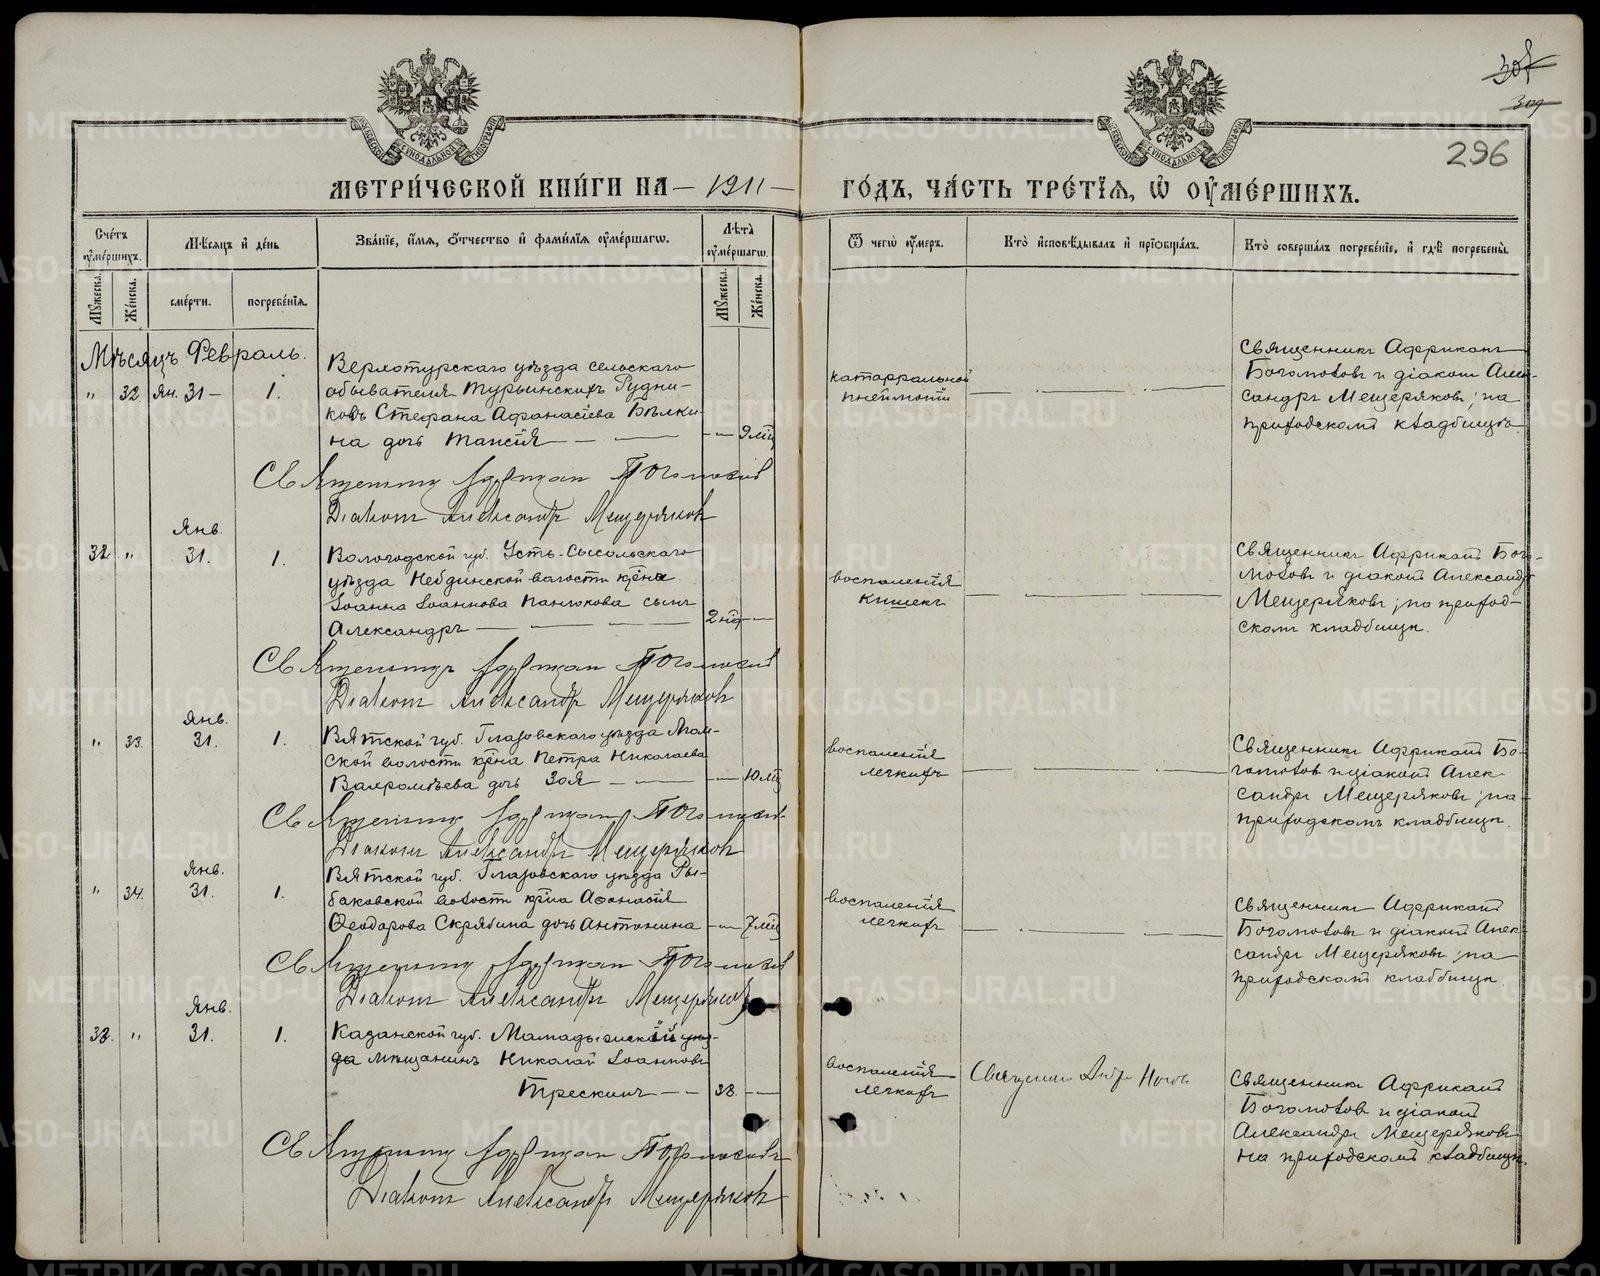 305
309
296
МЕТРИ́ЧЕСКОЙ КНИ́ГИ НА — 1911 —
ГО́ДЪ, ЧА́СТЬ ТРЕ́ТІѦ, Ѡ҆ ОУ҆МЕ́РШИХЪ.
Сче́тъ оу҆ме́ршихъ.
Мꙋ́жеска.
Же́нска.
Мѣ́сяцъ и҆ де́нь
сме́рти.
погребе́нїѧ.
Зва́нїе, и҆́мѧ, ѻ҆́тчество и҆ фами́лїѧ оу҆ме́ршагѡ.
Лѣ́та оу҆ме́ршагѡ.
Мꙋ́жеска.
Же́нска.
Ѿ чегѡ̀ оу҆́меръ.
Кто̀ и҆сповѣ́дывалъ и҆ прїѡбща́лъ.
Кто̀ соверша́лъ погребе́нїе, и҆ гдѣ̀ погребены̀.
Мѣсяцъ Февраль.
" 32 Ян. 31 — 1.
Верхотурскаго уѣзда сельскаго
обывателя Турьинскихъ Рудни-
ковъ Стефана Афанасіева Бѣлки-
на дочь Таисія — — —
— 9 мѣс
катарральной
пнеймоніи
Священникъ Африканъ
Богомоловъ и діаконъ Алек-
сандръ Мещеряковъ; на
приходскомъ кладбищѣ.
Священникъ Африканъ Богомоловъ
Діаконъ Александръ Мещеряковъ
32 " Янв. 31. 1.
Вологодской губ. Усть-Сысольскаго
уѣзда Небдинской волости кр‑на
Іоанна Іоаннова Панюкова сынъ
Александръ — — —
2 нед —
воспаленія
кишекъ
Священникъ Африканъ Бого-
моловъ и діаконъ Александръ
Мещеряковъ; на приход-
скомъ кладбищѣ.
Священникъ Африканъ Богомоловъ
Діаконъ Александръ Мещеряковъ
" 33. Янв. 31. 1.
Вятской губ. Глазовскаго уѣзда
ской волости кр‑на Петра Николаева
Вахромѣева дочь Зоя — —
— 10 мѣс
воспаленія
легкихъ
Священникъ Африканъ Бо-
гомоловъ и діаконъ Алек-
сандръ Мещеряковъ; на
приходскомъ кладбищѣ.
Священникъ Африканъ Богомоловъ
Діаконъ Александръ Мещеряковъ
" 34. Янв. 31. 1.
Вятской губ. Глазовскаго уѣзда Ры-
баковской волости кр‑на Афанасія
Ѳеодорова Скрябина дочь Антонина
— 7 мѣс
воспаленія
легкихъ
Священникъ Африканъ
Богомоловъ и діаконъ Алек-
сандръ Мещеряковъ; на
приходскомъ кладбищѣ.
Священникъ Африканъ Богомоловъ
Діаконъ Александръ Мещеряковъ
33. " Янв. 31. 1.
Казанской губ. Мамадышскій уѣз-
да мѣщанинъ Николай Іоанновъ
Трескинъ — — 38. —
воспаленія
легкихъ
Священникъ Попов
Священникъ Африканъ
Богомоловъ и діаконъ
Александръ Мещеряковъ
на приходскомъ кладбищѣ.
Священникъ Африканъ Богомоловъ
Діаконъ Александръ Мещеряковъ
METRIKI.GASO-URAL.RU